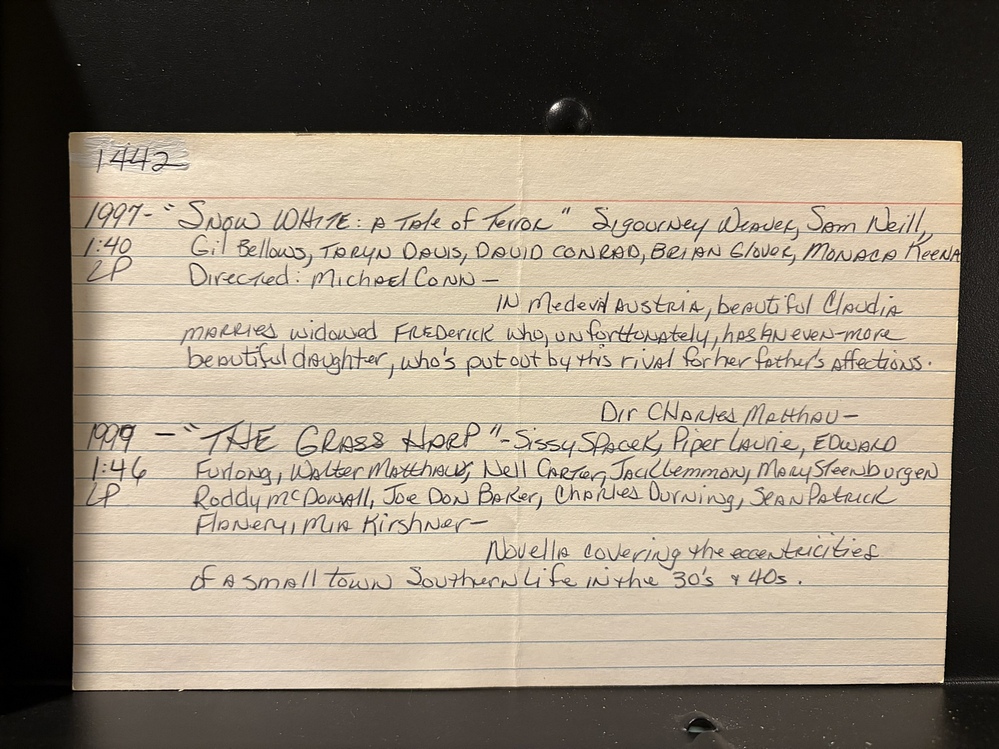 1442
1997- "Snow White: A Tale of Terror" Sigourney Weaver, Sam Neill,
1:40 Gil Bellows, Taryn Davis, David Conrad, Brian Glover, Monaca Keena
LP Directed: Michael Conn-
In Medeval Austria, beautiful Claudia
marries widowed Frederick who, unforttunately, has an even-more
beautiful daughter, who's put out by this rival for her father's affections.
Dir Charles Matthau-
1999 - "The Grass Harp"- Sissy Spacek, Piper Laurie, Edward
1:46 Furlong, Walter Matthau, Nell Carter, Jack Lemmon, Mary Steenburgen
LP Roddy McDowall, Joe Don Baker, Charles Durning, Sean Patrick
Flanery, Mia Kirshner-
Novella covering the eccentricities
of a small town Southern Life in the 30's & 40s.